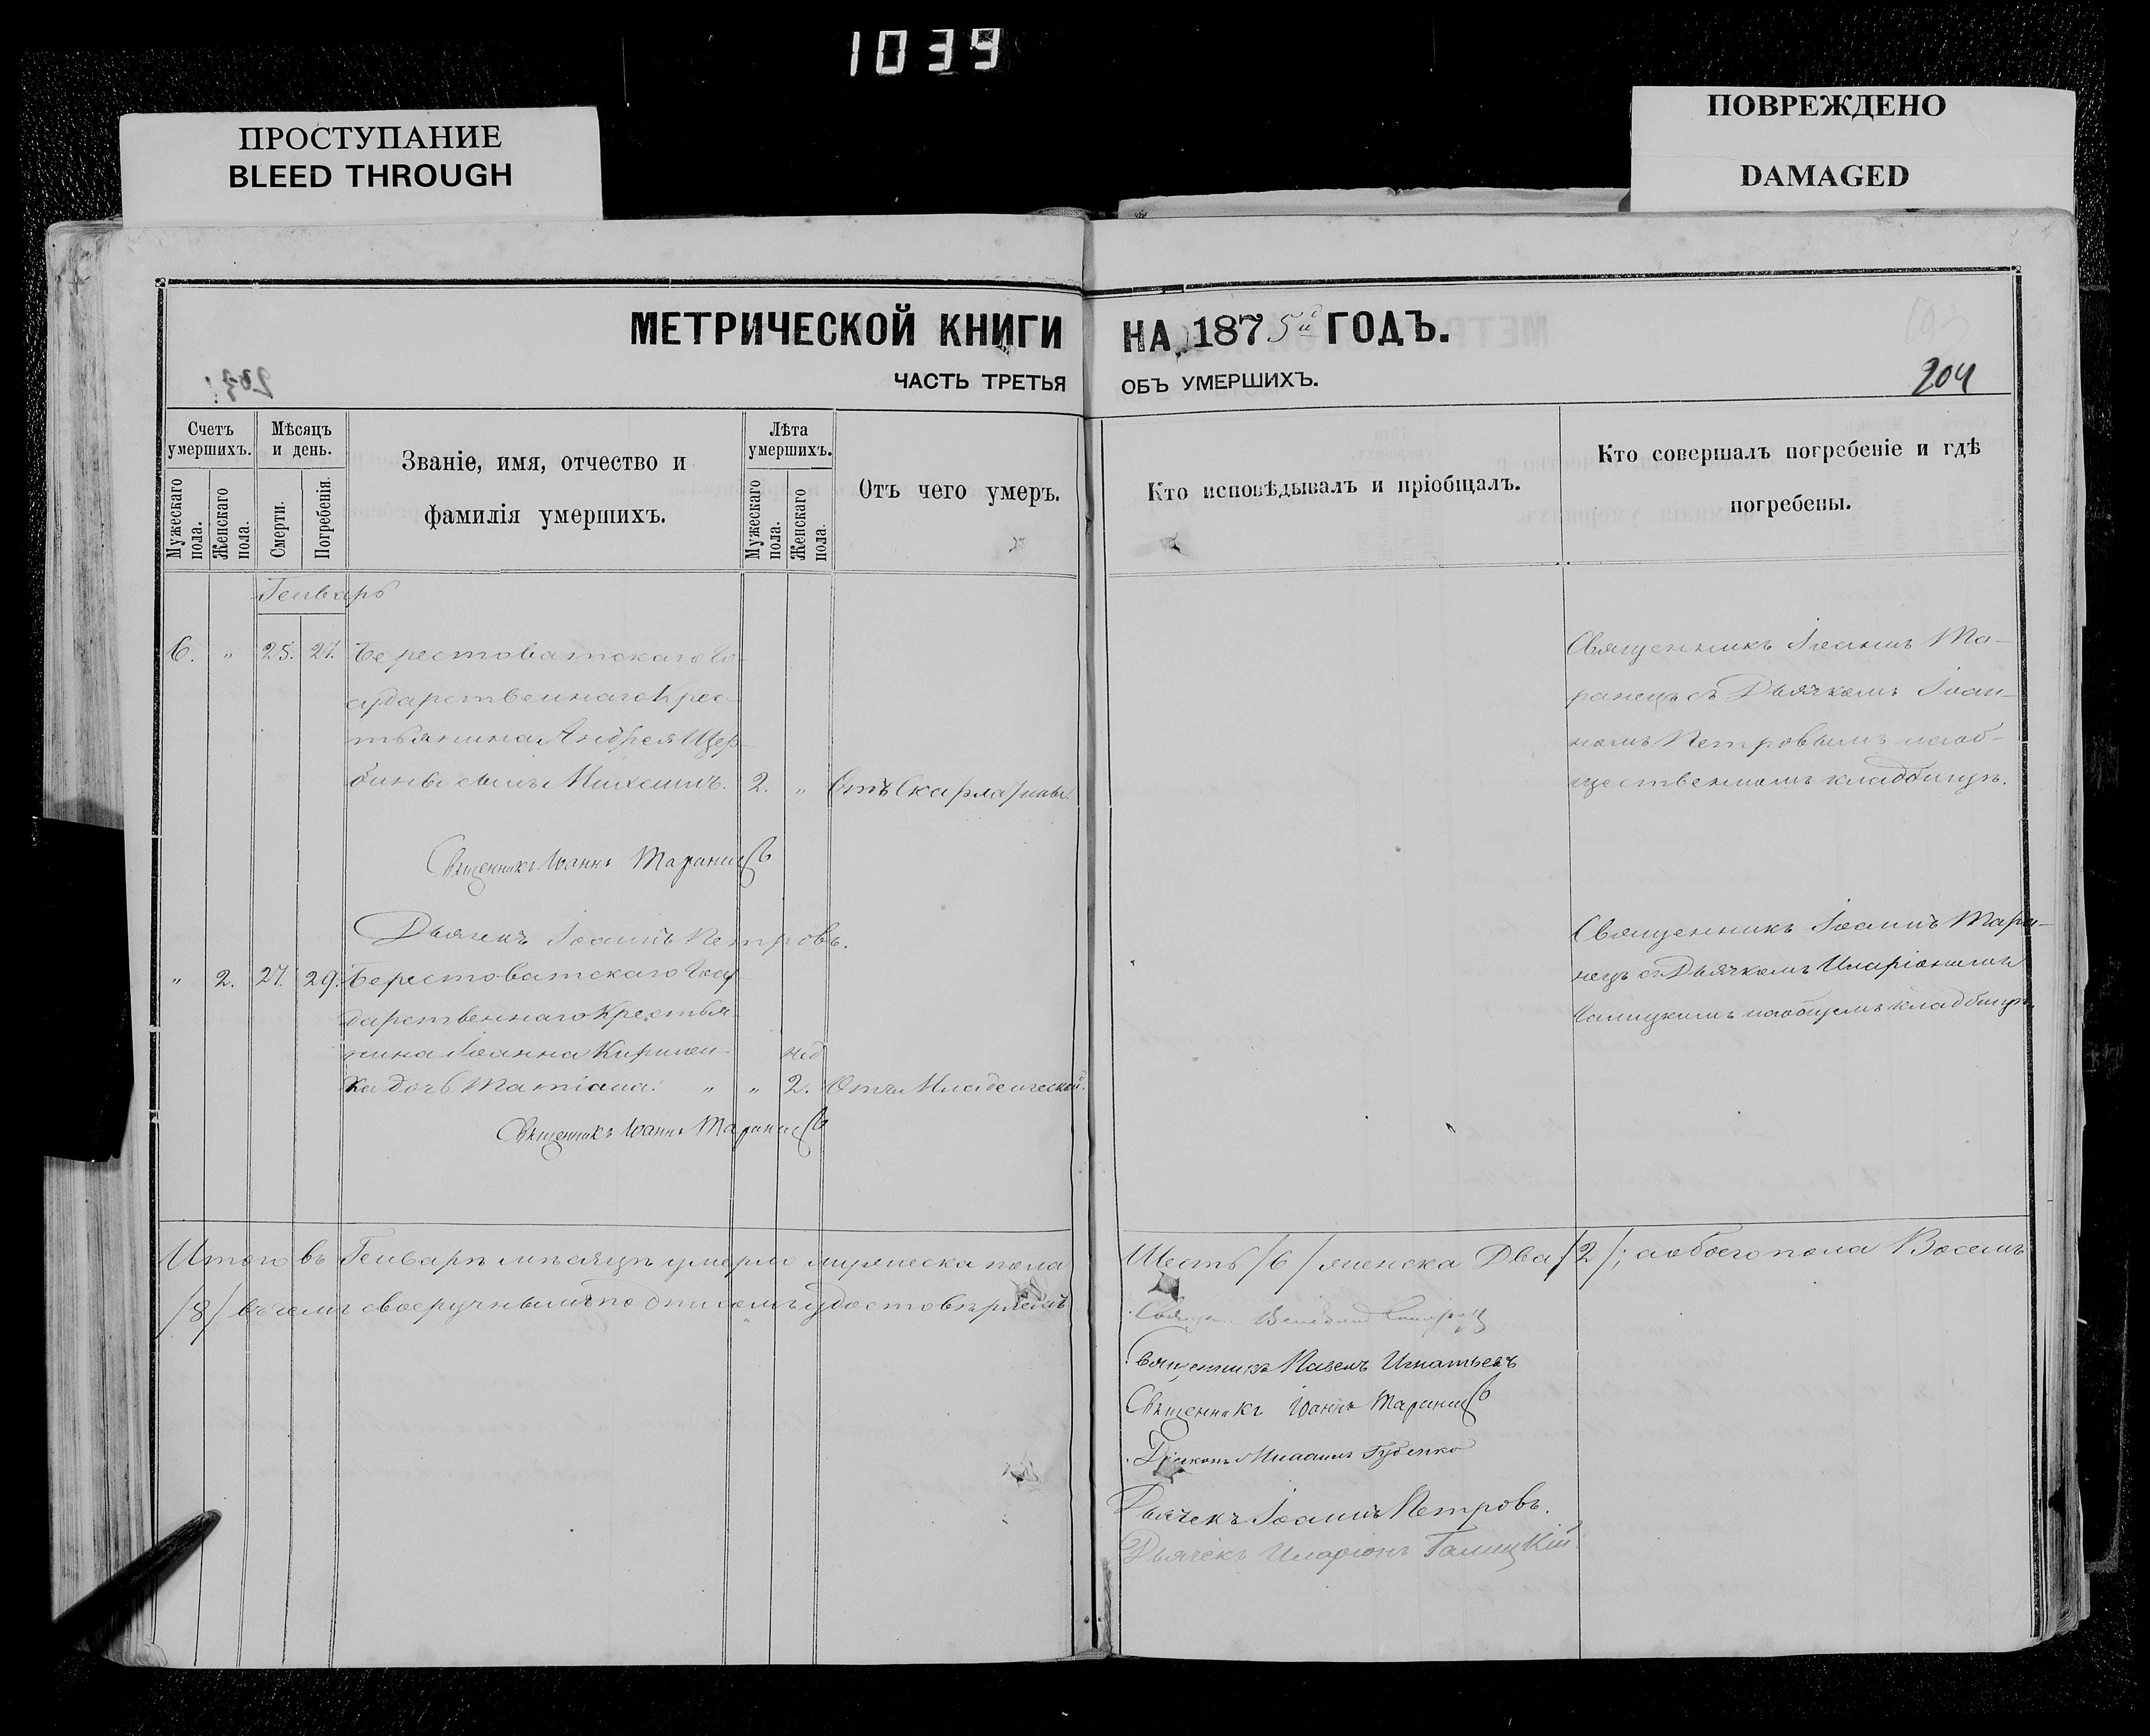 1039
ПРОСТУПАНИЕ
BLEED THROUGH
ПОВРЕЖДЕНО
DAMAGED
МЕТРИЧЕСКОЙ КНИГИ НА 1875й ГОДЪ.
ЧАСТЬ ТРЕТЬЯ ОБЪ УМЕРШИХЪ.
204
Счетъ умершихъ.
Мужескаго пола.
Женскаго пола.
Мѣсяцъ и день.
Смерти.
Погребенія.
Званіе, имя, отчество и
фамилія умершихъ.
Лѣта умершихъ.
Мужескаго пола.
Женскаго пола.
Отъ чего умеръ.
Кто исповѣдывалъ и пріобщалъ.
Кто совершалъ погребеніе и гдѣ
погребены.
Генварь
6. " 25. 27. Берестоватскаго Го-
сударственнаго Крес-
тьянина Андрея Щер-
бины сынъ 2. " Отъ Скарлатины.
Священникъ Іоаннъ Ма-
ранецъ съ Дьячкомъ Іоан-
номъ Петровымъ на об-
щественномъ кладбищѣ.
Священникъ Іоаннъ
Дьячекъ Іоаннъ Петровъ.
" 2. 27. 29. Берестоватскаго Госу-
дарственнаго Крестья-
нина Іоанна Кирилен-
ка дочь Татіана. " " нед 2. Отъ Младенческой.
Священникъ Іоаннъ
нецъ съ Дьячкомъ Иларіономъ
Галицкимъ на общемъ кладбищѣ
Священникъ Іоаннъ
Итого въ Генварѣ мѣсяцѣ умерло мужеска пола Шесть /6/ женска Два /2/; а обоего пола Восемь
/8/ въ чемъ своеручнымъ подписомъ удостовѣряемъ
Священникъ Павелъ Игнатьевъ
Священникъ Іоаннъ
Діаконъ Губенко
Дьячекъ Іоаннъ Петровъ.
Дьячекъ Иларіонъ Галицкій